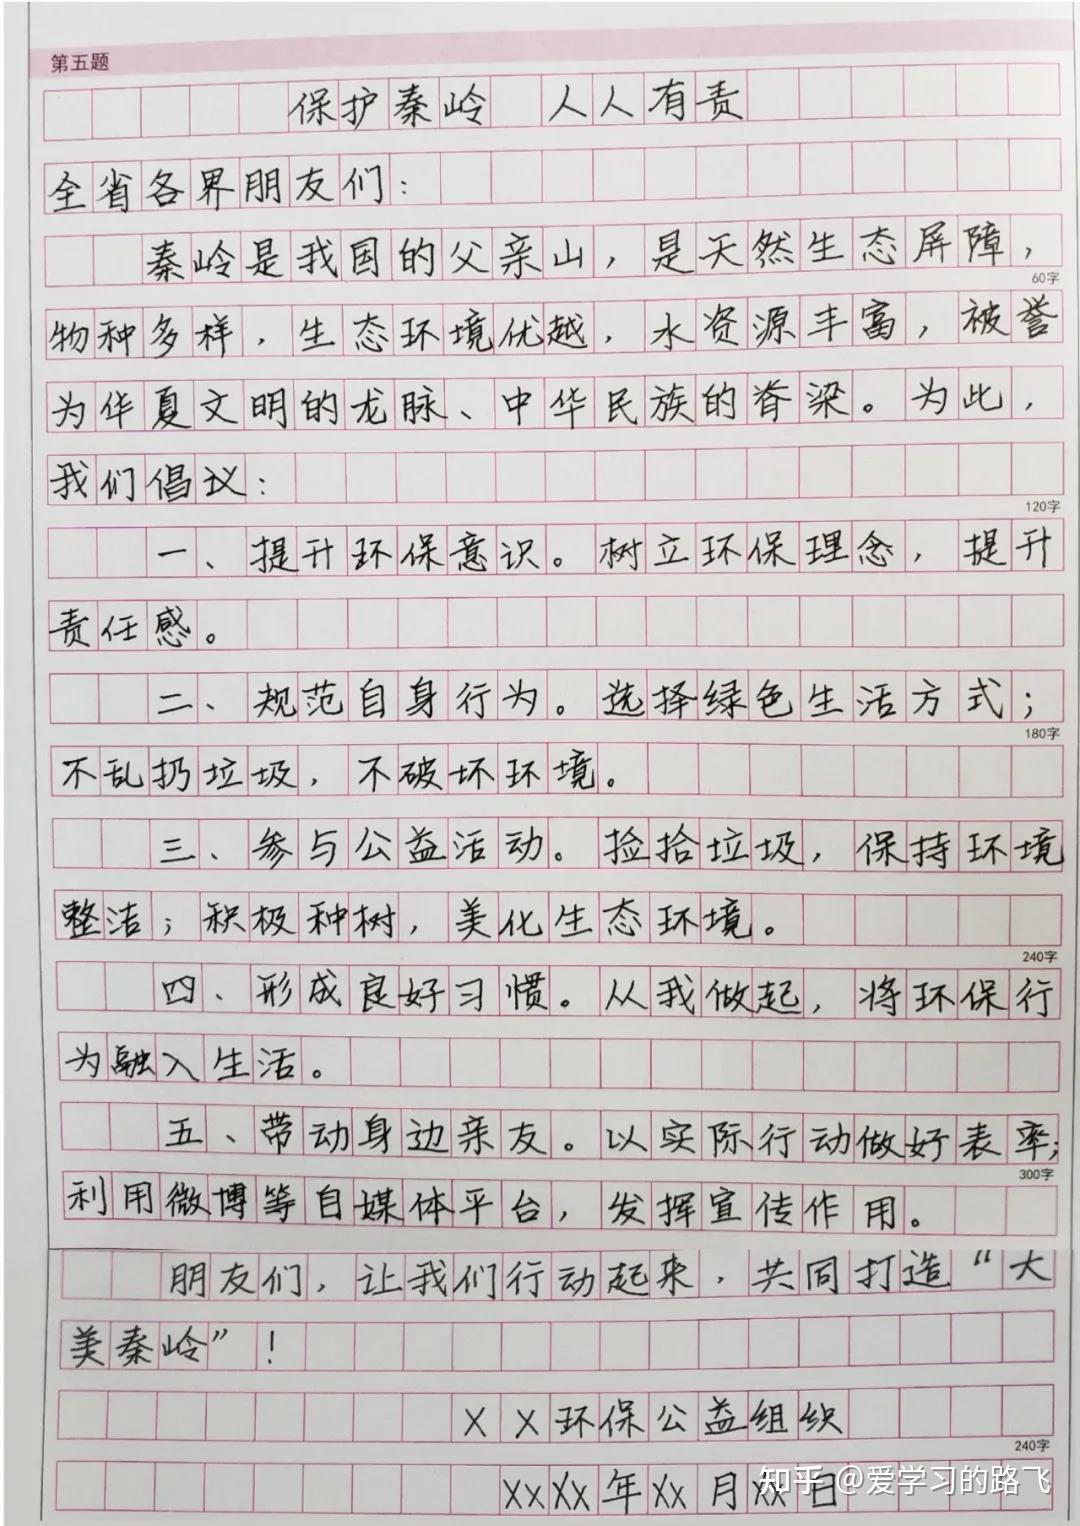 第五题
保护秦岭 人人有责
全省各界朋友们：
秦岭是我国的父亲山，是天然生态屏障，
60字
物种多样，生态环境优越，水资源丰富，被誉
为华夏文明的龙脉、中华民族的脊梁。为此，
我们倡议：
120字
一、提升环保意识。树立环保理念，提升
责任感。
二、规范自身行为。选择绿色生活方式；
180字
不乱扔垃圾，不破坏环境。
三、参与公益活动。捡拾垃圾，保持环境
整洁；积极种树，美化生态环境。
240字
四、形成良好习惯。从我做起，将环保行
为融入生活。
五、带动身边亲友。以实际行动做好表率；
300字
利用微博等自媒体平台，发挥宣传作用。
朋友们，让我们行动起来，共同打造“大
美秦岭”！
XX环保公益组织
240字
XXXX年XX月XX日
知乎 @爱学习的路飞